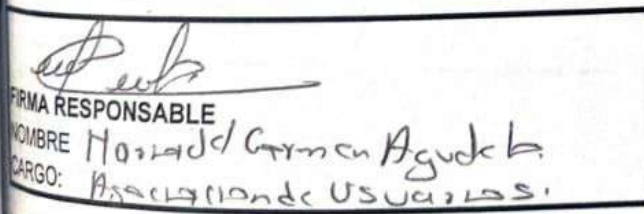 FIRMA RESPONSABLE
NOMBRE Maria del Carmen Agudelo.
CARGO: Asociacion de Usuarios.